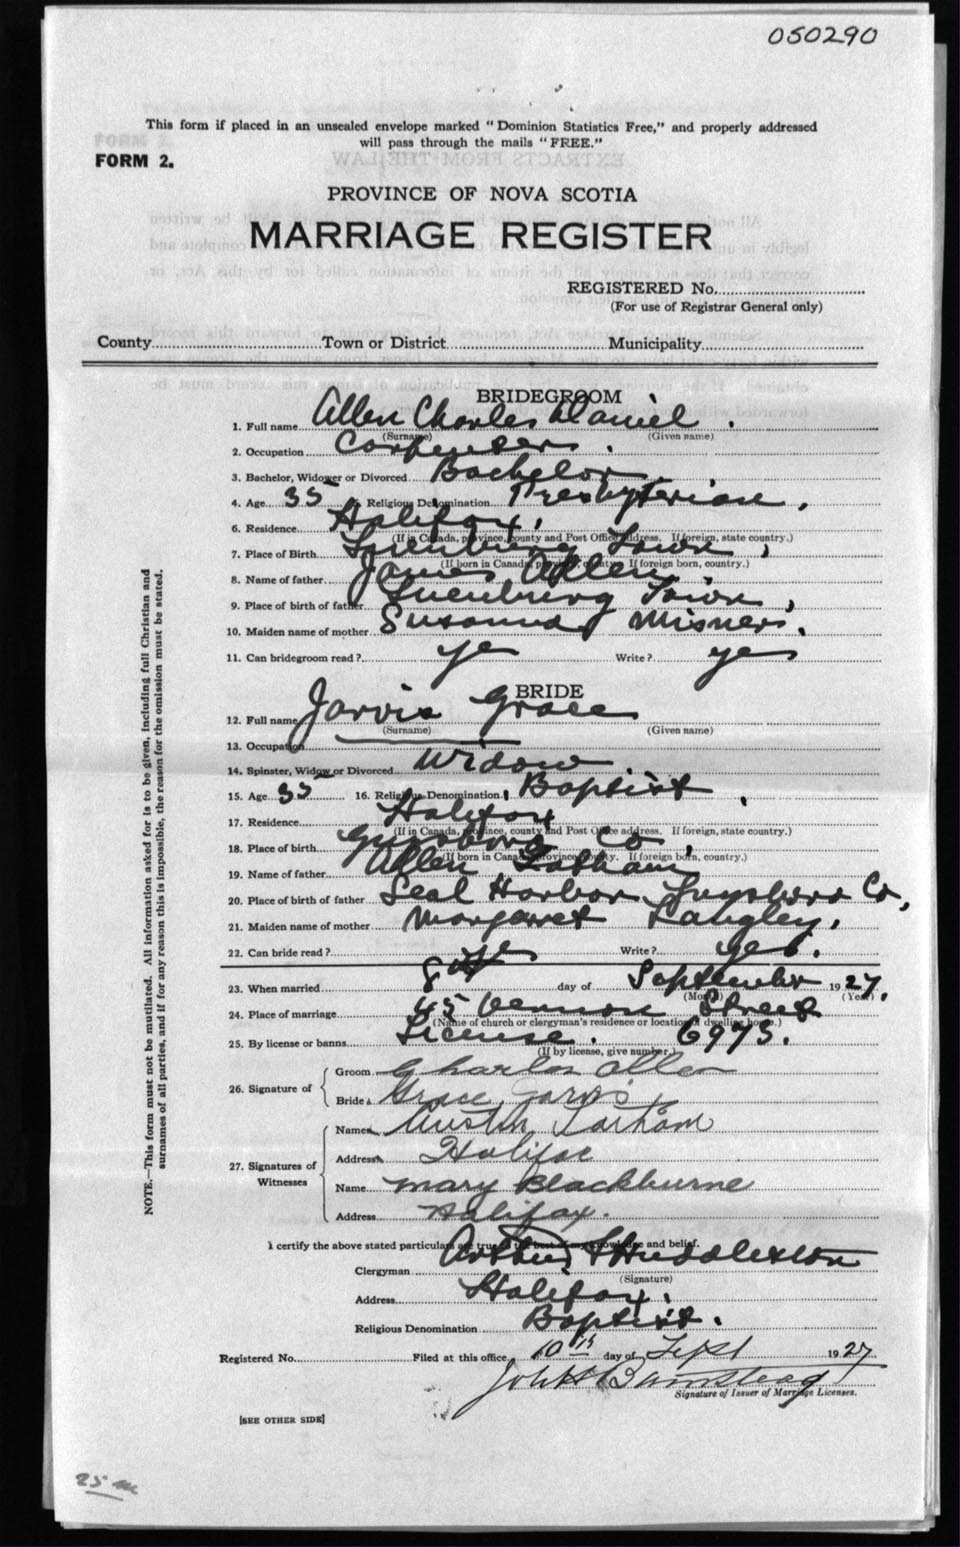 050290
This form if placed in an unsealed envelope marked "Dominion Statistics Free," and properly addressed
will pass through the mails "FREE."
FORM 2.
PROVINCE OF NOVA SCOTIA
MARRIAGE REGISTER
REGISTERED No.
(For use of Registrar General only)
County Town or District Municipality
BRIDEGROOM
1. Full name Allen Charles Daniel
(Surname) (Given name)
2. Occupation Carpenter.
3. Bachelor, Widower or Divorced Bachelor
4. Age 35 5. Religious Denomination Presbyterian.
6. Residence Halifax,
(If in Canada, province, county and Post Office address. If foreign, state country.)
7. Place of Birth Lunenburg Town,
(If born in Canada, province, county. If foreign born, country.)
8. Name of father James Allen.
9. Place of birth of father Luenburg Town,
10. Maiden name of mother Susanna Misner.
11. Can bridegroom read? ye Write? yes
BRIDE
12. Full name Jarvis Grace
(Surname) (Given name)
13. Occupation
14. Spinster, Widow or Divorced Widow
15. Age 35 16. Religious Denomination Baptist,
17. Residence Halifax
(If in Canada, province, county and Post Office address. If foreign, state country.)
18. Place of birth Co,
(If born in Canada, province, county. If foreign born, country.)
19. Name of father Allen
20. Place of birth of father Seal Harbor Co,
21. Maiden name of mother Margaret Langley,
22. Can bride read? ye Write? yes.
23. When married 8th day of September 1927.
(Month) (Year)
24. Place of marriage 45 Vernon Street
(Name of church or clergyman's residence or location of dwelling house.)
25. By license or banns License. 6973.
(If by license, give number.)
26. Signature of Groom Charles Allen
Bride Grace Jarvis
27. Signatures of Witnesses
Name Austin Larham
Address Halifax
Name Mary Blackburne
Address Halifax.
I certify the above stated particulars are true to the best of my knowledge and belief.
Clergyman Arthur Huddleston
(Signature)
Address Halifax.
Religious Denomination Baptist.
Registered No. Filed at this office 10th day of Sept 1927
John H Barnstead
Signature of Issuer of Marriage Licenses.
[SEE OTHER SIDE]
25 m
NOTE.—This form must not be mutilated. All information asked for is to be given, including full Christian and
surnames of all parties, and if for any reason this is impossible, the reason for the omission must be stated.